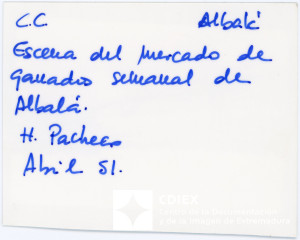 C.C Albalá
Escena del Mercado de
Ganado semanal de
Albalá.
H. Pacheco
Abril 51.
CDIEX